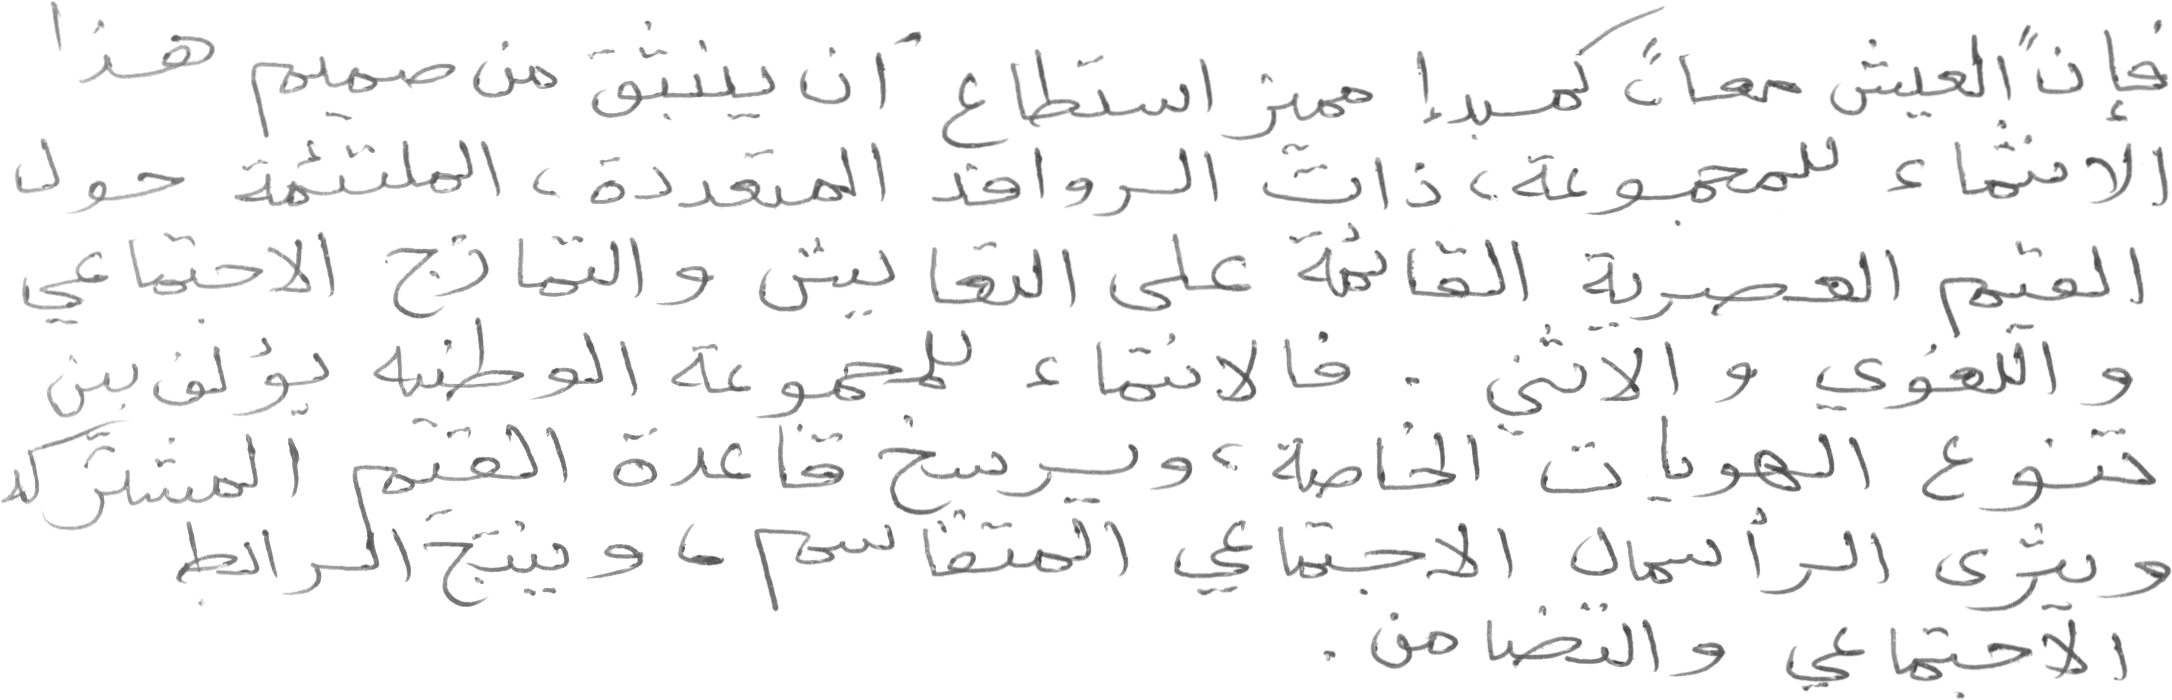 فإن "العيش معا" كمبدإ مميز استطاع أن ينبثق من صميم هذا
الانتماء للمجموعة، ذات الروافد المتعددة، الملتئمة حول
القيم العصرية القائمة على التعايش والتمازج الاجتماعي
واللغوي والاثني. فالانتماء للمجموعة الوطنيه يؤلف بين
تنوع الهويات الخاصة، ويرسخ قاعدة القيم المشتركه
ويثرى الرأسمال الاجتماعي المتقاسم، وينتج الرابط
الاجتماعي والتضامن.